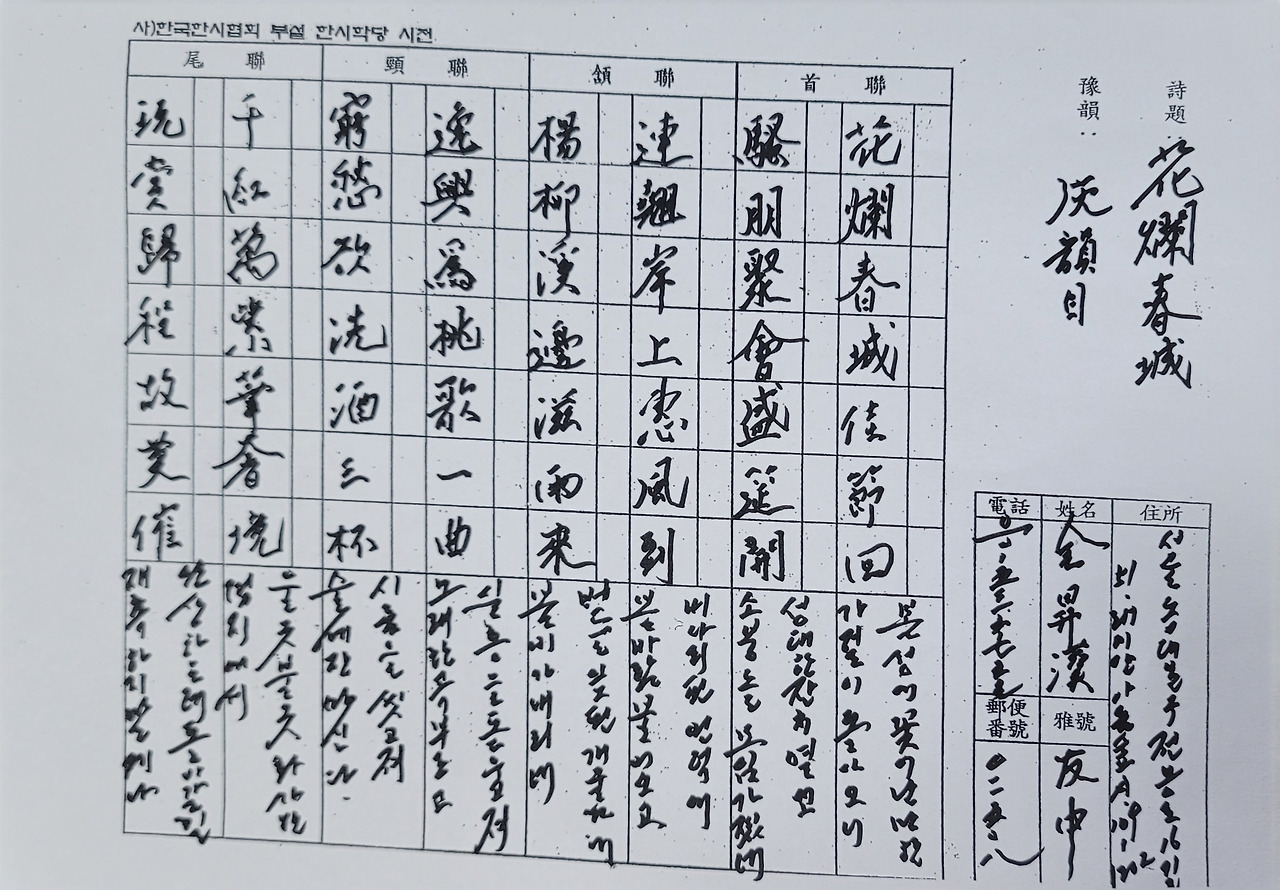 사)한국한시협회 부설 한시학당 시전
詩題: 花爛春城
豫韻: 灰韻目
首聯
花爛春城佳節回
騷朋聚會盛筵開
頷聯
連翹岸上惠風到
楊柳溪邊滋雨來
頸聯
逸興爲挑歌一曲
窮愁欲洗酒三杯
尾聯
千紅萬紫華奢境
玩賞歸程故莫催
봄성에 꽃이 난만한
가절이 돌아오니
성대한 잔치 열고
소붕들 모임 가졌네
개나리 핀 언덕에
봄바람 불어오고
버드나무 개울가에
봄비가 내리네
노래 한 곡 부르고
시름을 씻고져
술 세 잔 마신다
울긋불긋 화사한
경지에서
완상하는데 돌아갈 길
재촉하지 말게나
住所
姓名
金昇漢
電話
雅號
友申
郵便番號